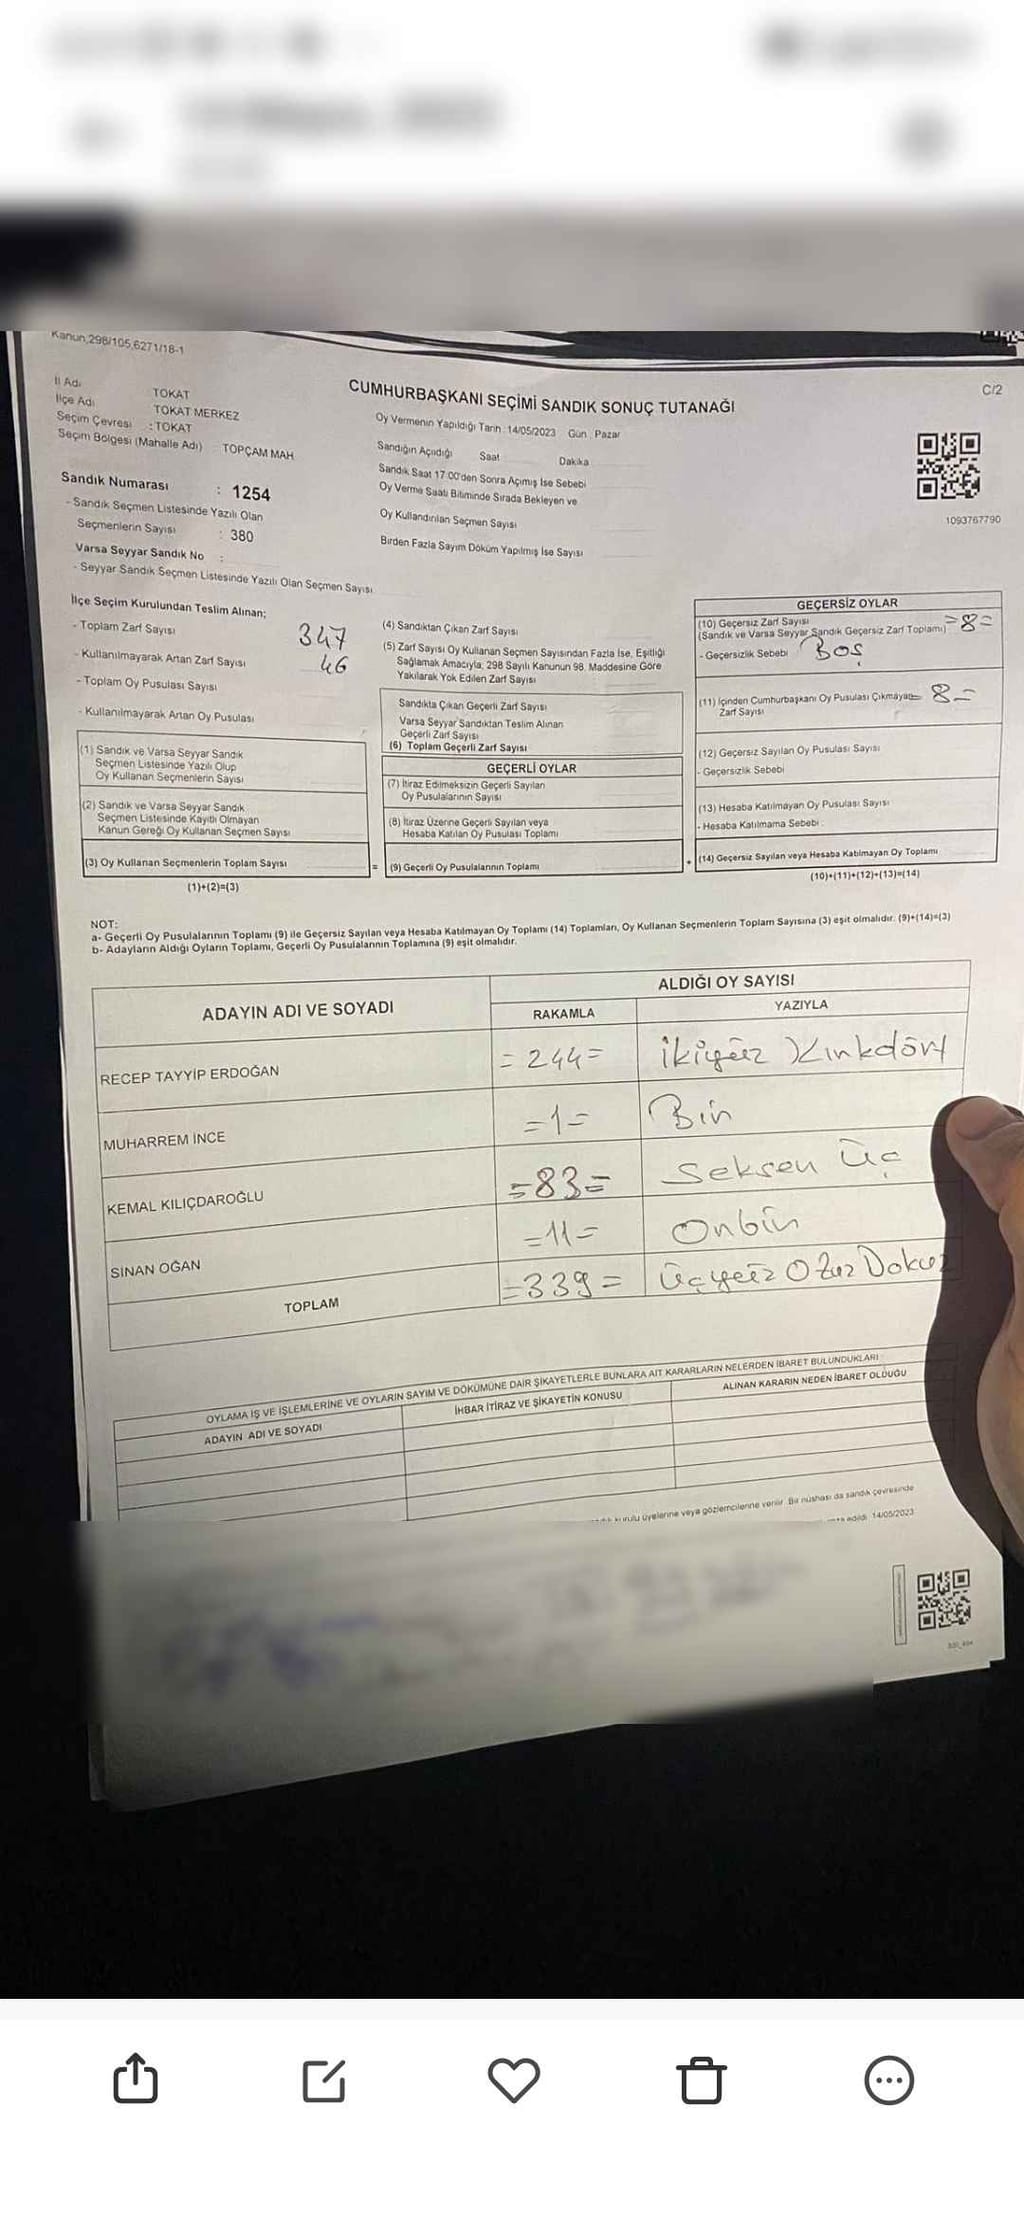 Kanun,298/105,6271/18-1
C/2
İl Adı TOKAT
İlçe Adı TOKAT MERKEZ
Seçim Çevresi : TOKAT
Seçim Bölgesi (Mahalle Adı) TOPÇAM MAH
CUMHURBAŞKANI SEÇİMİ SANDIK SONUÇ TUTANAĞI
Oy Vermenin Yapıldığı Tarih : 14/05/2023 Gün : Pazar
Sandığın Açıldığı Saat Dakika
Sandık Saat 17:00'den Sonra Açımış İse Sebebi
Oy Verme Saati Bitiminde Sırada Bekleyen ve
Oy Kullandırılan Seçmen Sayısı
Birden Fazla Sayım Döküm Yapılmış İse Sayısı
1093767790
Sandık Numarası : 1254
- Sandık Seçmen Listesinde Yazılı Olan
Seçmenlerin Sayısı : 380
Varsa Seyyar Sandık No :
- Seyyar Sandık Seçmen Listesinde Yazılı Olan Seçmen Sayısı
İlçe Seçim Kurulundan Teslim Alınan;
- Toplam Zarf Sayısı 347
- Kullanılmayarak Artan Zarf Sayısı 46
- Toplam Oy Pusulası Sayısı
- Kullanılmayarak Artan Oy Pusulası
(1) Sandık ve Varsa Seyyar Sandık
Seçmen Listesinde Yazılı Olup
Oy Kullanan Seçmenlerin Sayısı
(2) Sandık ve Varsa Seyyar Sandık
Seçmen Listesinde Kayıtlı Olmayan
Kanun Gereği Oy Kullanan Seçmen Sayısı
(3) Oy Kullanan Seçmenlerin Toplam Sayısı
(1)+(2)=(3)
(4) Sandıktan Çıkan Zarf Sayısı
(5) Zarf Sayısı Oy Kullanan Seçmen Sayısından Fazla İse, Eşitliği
Sağlamak Amacıyla, 298 Sayılı Kanunun 98. Maddesine Göre
Yakılarak Yok Edilen Zarf Sayısı
Sandıkta Çıkan Geçerli Zarf Sayısı
Varsa Seyyar Sandıktan Teslim Alınan
Geçerli Zarf Sayısı
(6) Toplam Geçerli Zarf Sayısı
GEÇERLİ OYLAR
(7) İtiraz Edilmeksizin Geçerli Sayılan
Oy Pusulalarının Sayısı
(8) İtiraz Üzerine Geçerli Sayılan veya
Hesaba Katılan Oy Pusulası Toplamı
= (9) Geçerli Oy Pusulalarının Toplamı
GEÇERSİZ OYLAR
(10) Geçersiz Zarf Sayısı
(Sandık ve Varsa Seyyar Sandık Geçersiz Zarf Toplamı) =8=
- Geçersizlik Sebebi Boş
(11) İçinden Cumhurbaşkanı Oy Pusulası Çıkmayan 8=
Zarf Sayısı
(12) Geçersiz Sayılan Oy Pusulası Sayısı
- Geçersizlik Sebebi
(13) Hesaba Katılmayan Oy Pusulası Sayısı
- Hesaba Katılmama Sebebi :
+ (14) Geçersiz Sayılan veya Hesaba Katılmayan Oy Toplamı
(10)+(11)+(12)+(13)=(14)
NOT:
a- Geçerli Oy Pusulalarının Toplamı (9) ile Geçersiz Sayılan veya Hesaba Katılmayan Oy Toplamı (14) Toplamları, Oy Kullanan Seçmenlerin Toplam Sayısına (3) eşit olmalıdır. (9)+(14)=(3)
b- Adayların Aldığı Oyların Toplamı, Geçerli Oy Pusulalarının Toplamına (9) eşit olmalıdır.
ADAYIN ADI VE SOYADI
ALDIĞI OY SAYISI
RAKAMLA YAZIYLA
RECEP TAYYİP ERDOĞAN =244= ikiyüz Kırkdört
MUHARREM İNCE =1= Bin
KEMAL KILIÇDAROĞLU =83= Seksen Üç
SİNAN OĞAN =11= Onbin
TOPLAM =339= Üçyüz Otuz Dokuz
OYLAMA İŞ VE İŞLEMLERİNE VE OYLARIN SAYIM VE DÖKÜMÜNE DAİR ŞİKAYETLERLE BUNLARA AİT KARARLARIN NELERDEN İBARET BULUNDUKLARI
ADAYIN ADI VE SOYADI İHBAR İTİRAZ VE ŞİKAYETİN KONUSU ALINAN KARARIN NEDEN İBARET OLDUĞU
kurulu üyelerine veya gözlemcilerine verilir. Bir nüshası da sandık çevresinde
edildi. 14/05/2023